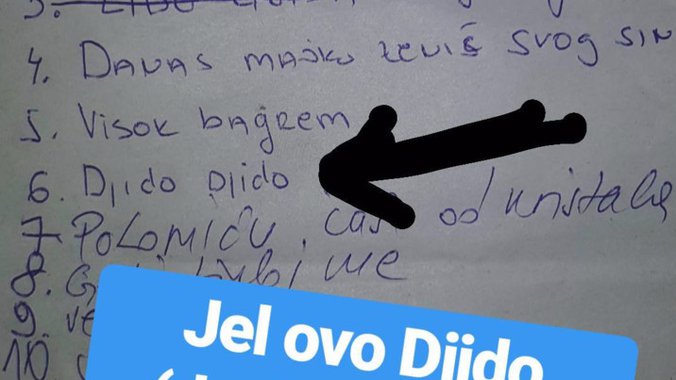 4. DANAS MAJKO ŽENIŠ SVOG SIN
5. VISOK BAGREM
6. Djido Djido
7 POLOMIĆU čaš od kristala
8. ljubi me
9. ve
10
Jel ovo Djido